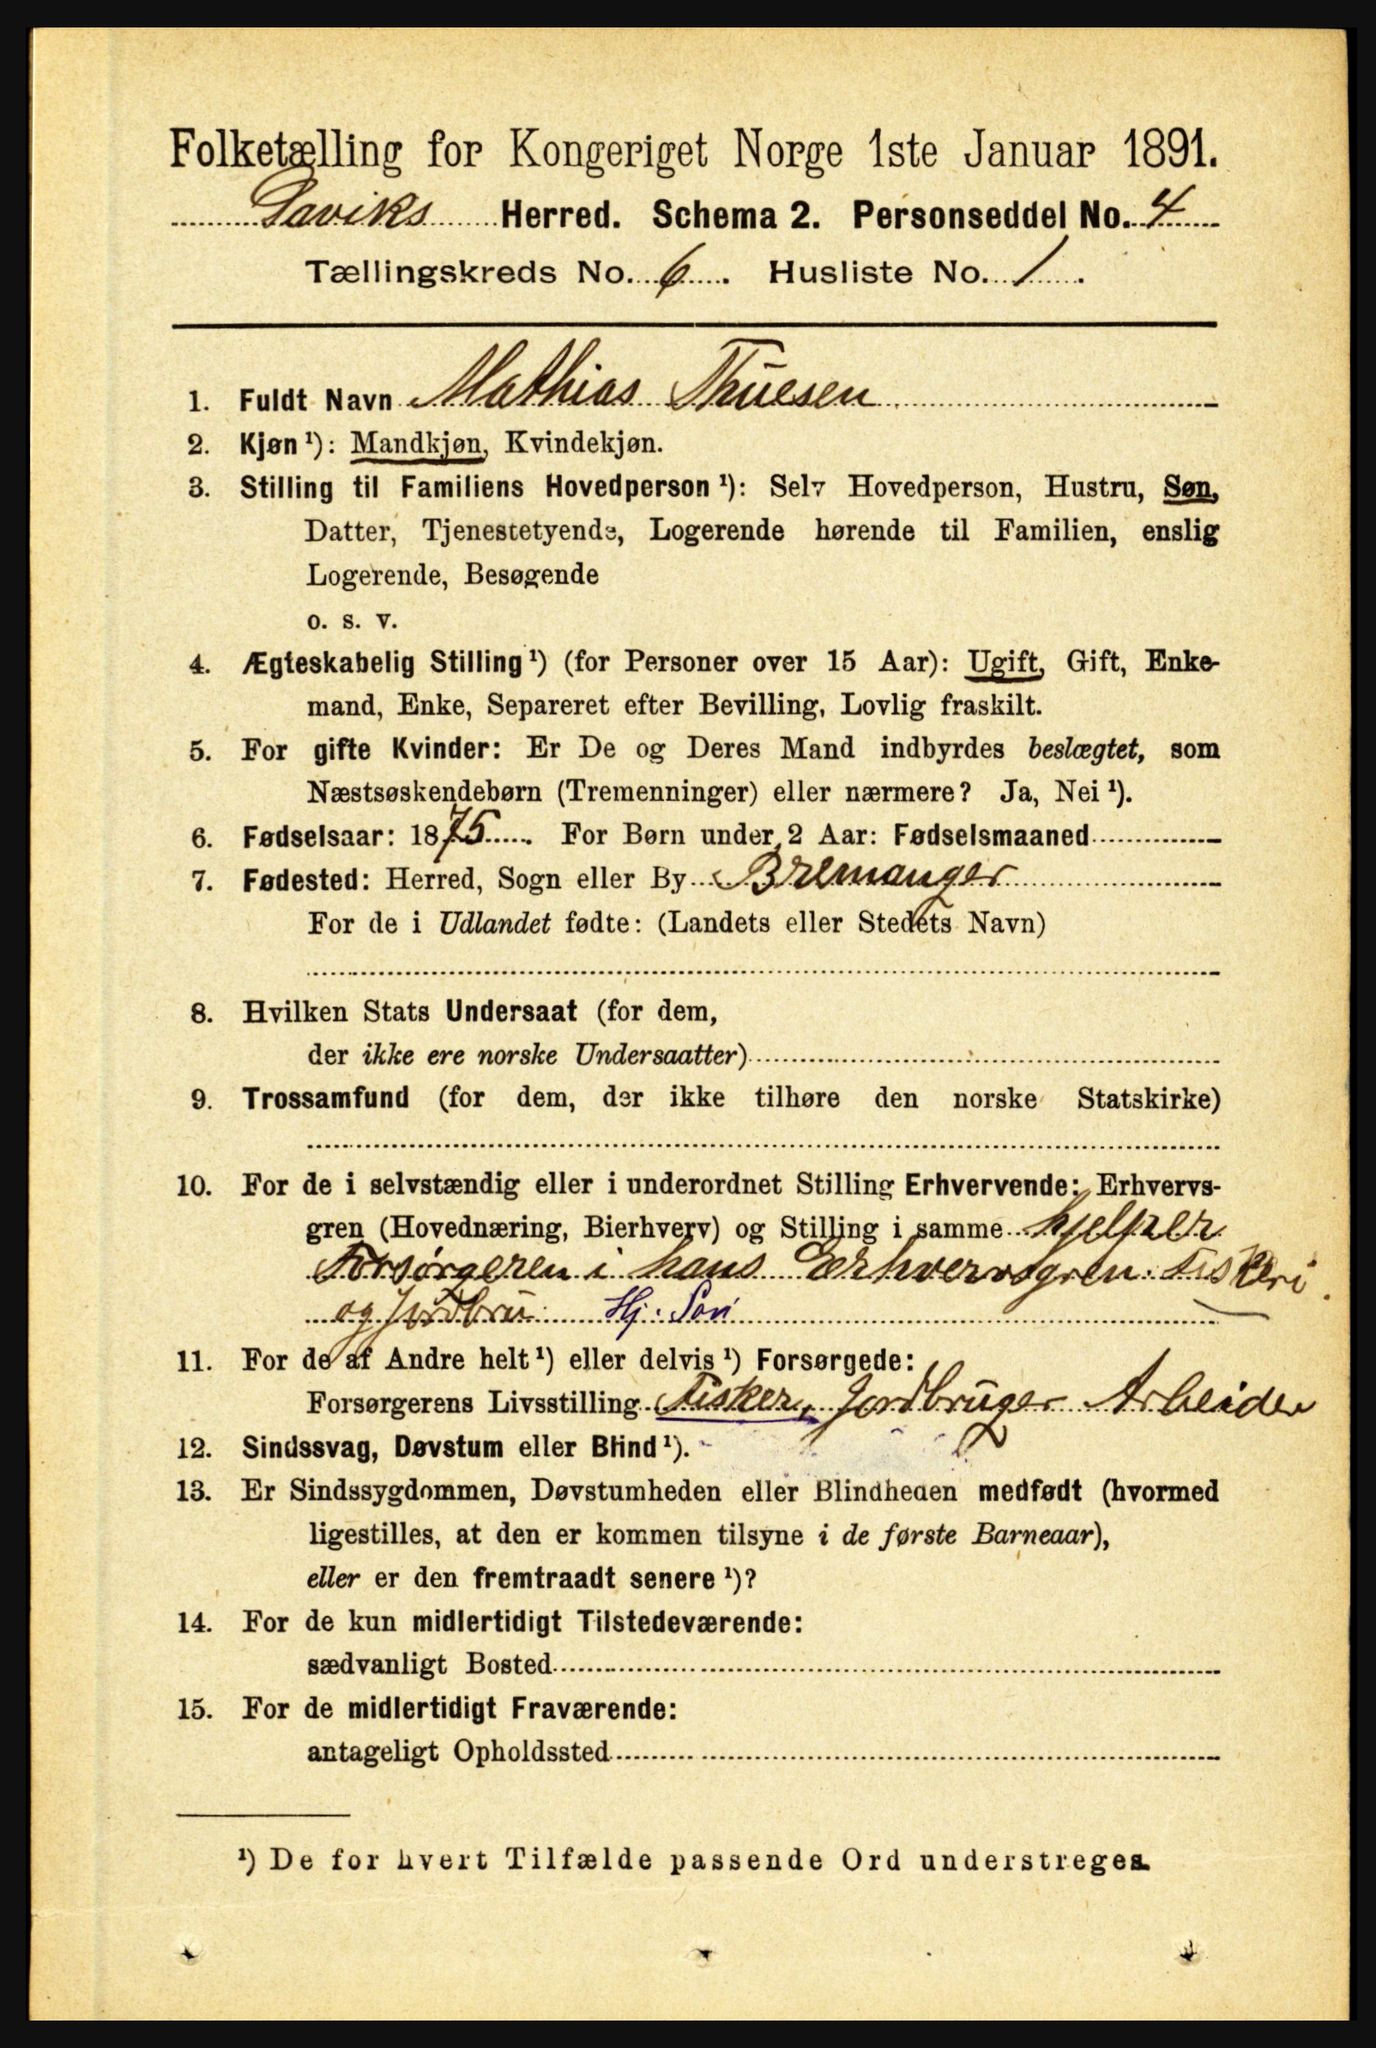 Folketælling for Kongeriget Norge 1ste Januar 1891.
Daviks Herred. Schema 2. Personseddel No. 4
Tællingskreds No. 6. Husliste No. 1.
1. Fuldt Navn Mathias Thuesen
2. Kjøn¹): Mandkjøn, Kvindekjøn.
3. Stilling til Familiens Hovedperson¹): Selv Hovedperson, Hustru, Søn,
Datter, Tjenestetyende, Logerende hørende til Familien, enslig
Logerende, Besøgende
o. s. v.
4. Ægteskabelig Stilling¹) (for Personer over 15 Aar): Ugift, Gift, Enke-
mand, Enke, Separeret efter Bevilling, Lovlig fraskilt.
5. For gifte Kvinder: Er De og Deres Mand indbyrdes beslægtet, som
Næstsøskendebørn (Tremenninger) eller nærmere? Ja, Nei¹).
6. Fødselsaar: 1875. For Børn under 2 Aar: Fødselsmaaned
7. Fødested: Herred, Sogn eller By Bremanger
For de i Udlandet fødte: (Landets eller Stedets Navn)
8. Hvilken Stats Undersaat (for dem,
der ikke ere norske Undersaatter)
9. Trossamfund (for dem, der ikke tilhøre den norske Statskirke)
10. For de i selvstændig eller i underordnet Stilling Erhvervende: Erhvervs-
gren (Hovednæring, Bierhverv) og Stilling i samme hjelper
Forsørgeren i hans Erhvervsgren: Fiskeri
og Jordbru Hj. Søn
11. For de af Andre helt¹) eller delvis¹) Forsørgede:
Forsørgerens Livsstilling Fisker, Jordbruger Arbeider
12. Sindssvag, Døvstum eller Blind¹).
13. Er Sindssygdommen, Døvstumheden eller Blindheden medfødt (hvormed
ligestilles, at den er kommen tilsyne i de første Barneaar),
eller er den fremtraadt senere¹)?
14. For de kun midlertidigt Tilstedeværende:
sædvanligt Bosted
15. For de midlertidigt Fraværende:
antageligt Opholdssted
¹) De for hvert Tilfælde passende Ord understreges.